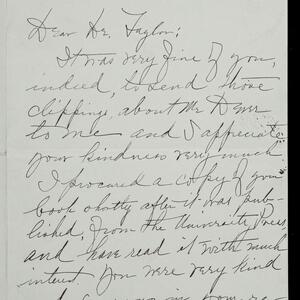 Dear Dr. Taylor:
It was very fine of you,
indeed, to send those
clippings about Mr Dever
to me and I appreciate
your kindness very much.
I procured a copy of your
book shortly after it was pub-
lished, from the University Press,
and have read it with much
interest. You were very kind